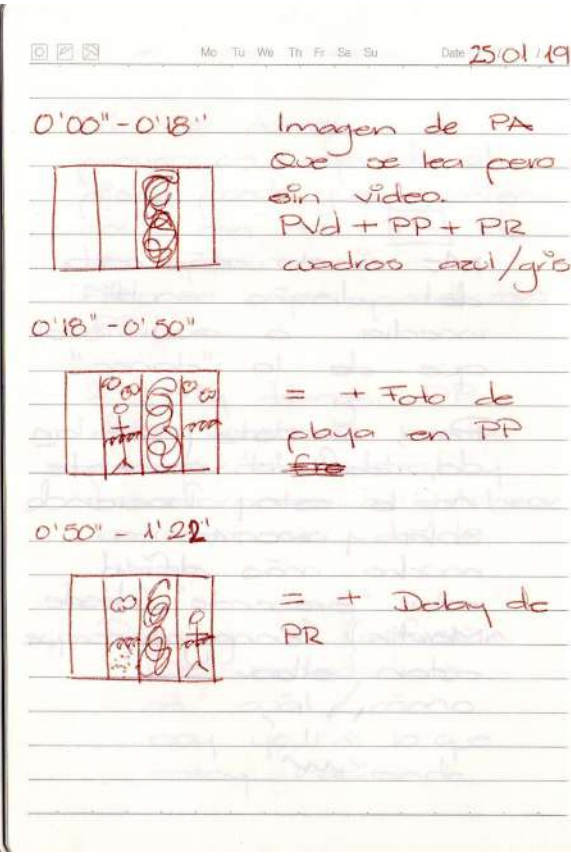 Mo Tu We Th Fr Sa Su Date 25/01/19
0'00" - 0'18" Imagen de PA
Que se lea pero
sin video.
PVd + PP + PR
cuadros azul/gris
0'18" - 0'50"
= + Foto de
playa en PP
0'50" - 1'22"
= + Delay de
PR